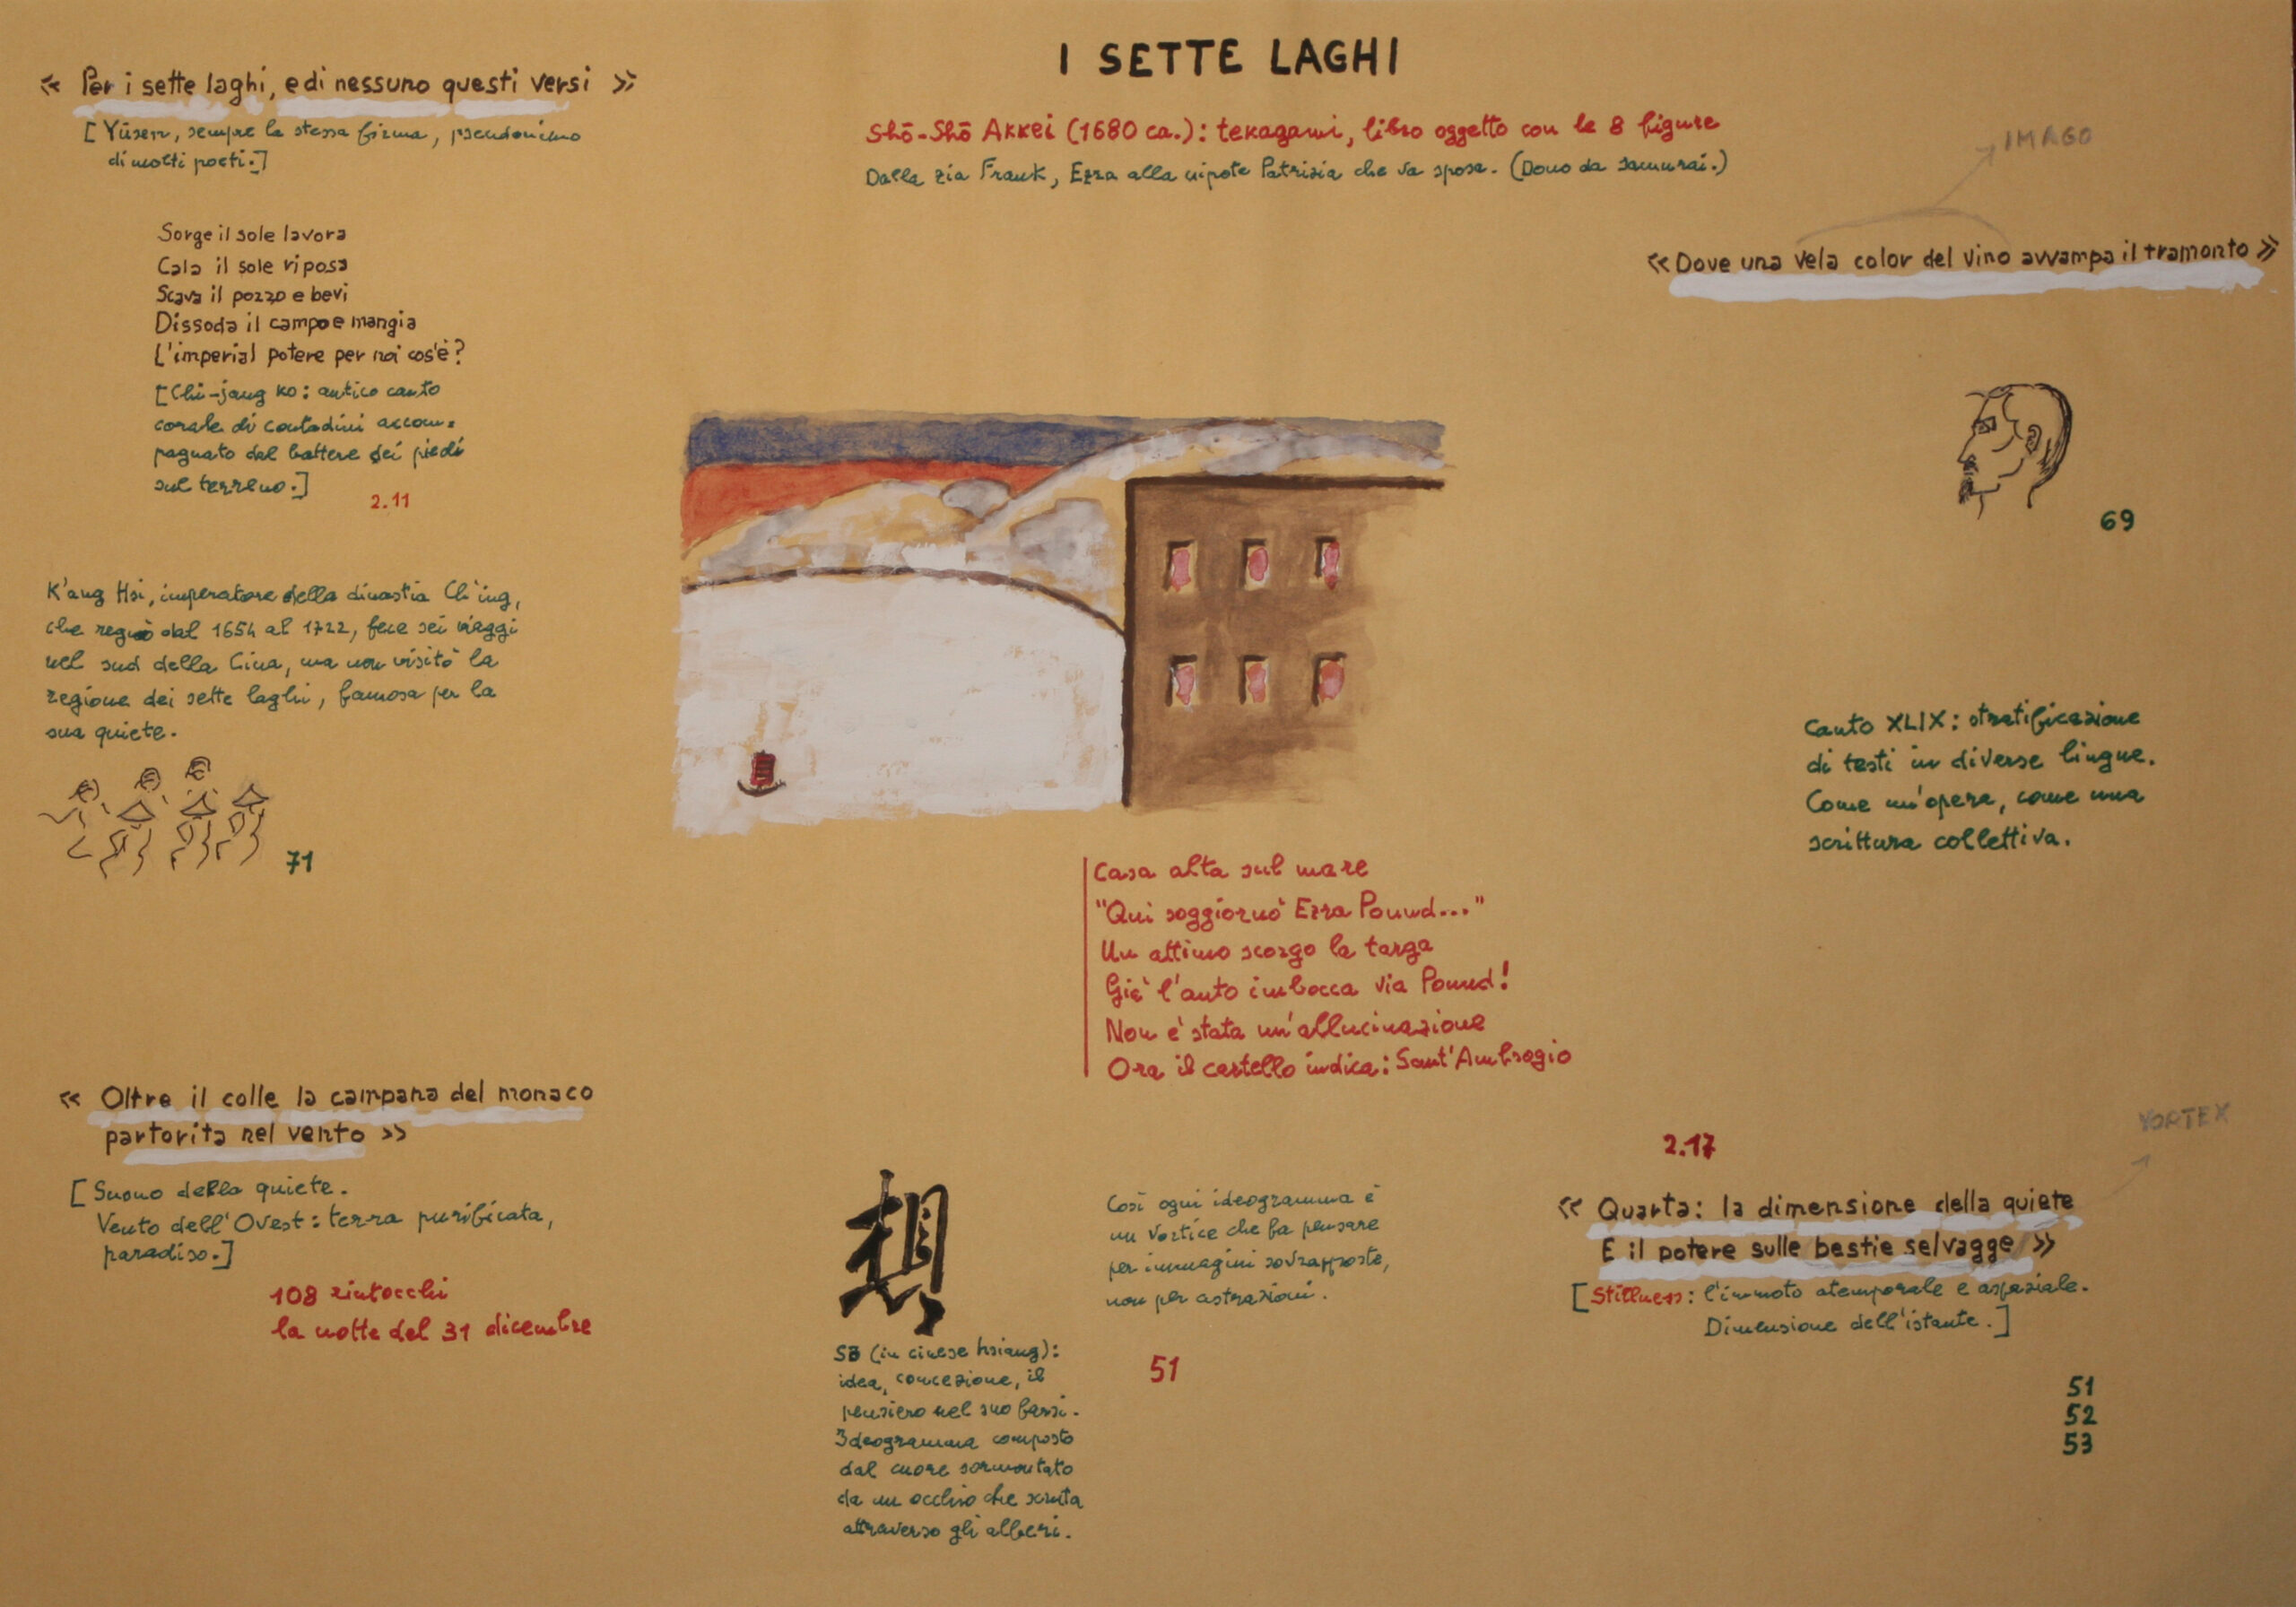 I SETTE LAGHI
Shō-Shō Akkei (1680 ca.): tekagami, libro oggetto con le 8 figure
Dalla zia Frank, Ezra alla nipote Patrizia che va sposa. (Dono da samurai.)
« Per i sette laghi, e di nessuno questi versi »
[Yūsen, sempre la stessa firma, pseudonimo
di molti poeti.]
Sorge il sole lavora
Cala il sole riposa
Scava il pozzo e bevi
Dissoda il campo e mangia
L'imperial potere per noi cos'è?
[Chi-jang ko: antico canto
corale di contadini accom=
pagnato dal battere dei piedi
sul terreno.]
2.11
K'ang Hsi, imperatore della dinastia Ch'ing,
che regnò dal 1654 al 1722, fece sei viaggi
nel sud della Cina, ma non visitò la
regione dei sette laghi, famosa per la
sua quiete.
71
« Oltre il colle la campana del monaco
partorita nel vento »
[Suono della quiete.
Vento dell'Ovest: terra purificata,
paradiso.]
108 rintocchi
la notte del 31 dicembre
IMAGO
«Dove una vela color del vino avvampa il tramonto»
69
Canto XLIX: stratificazione
di testi in diverse lingue.
Come un'opera, come una
scrittura collettiva.
Casa alta sul mare
"Qui soggiornò Ezra Pound..."
Un attimo scorgo la targa
Già l'auto imbocca via Pound!
Non è stata un'allucinazione
Ora il cartello indica: Sant'Ambrogio
想
Sō (in cinese hsiang):
idea, concezione, il
pensiero nel suo farsi.
Ideogramma composto
dal cuore sormontato
da un occhio che scruta
attraverso gli alberi.
Così ogni ideogramma è
un vortice che fa pensare
per immagini sovrapposte,
non per astrazioni.
51
VORTEX
2.17
« Quarta: la dimensione della quiete
E il potere sulle bestie selvagge »
[Stillness: l'immoto atemporale e aspaziale.
Dimensione dell'istante.]
51
52
53